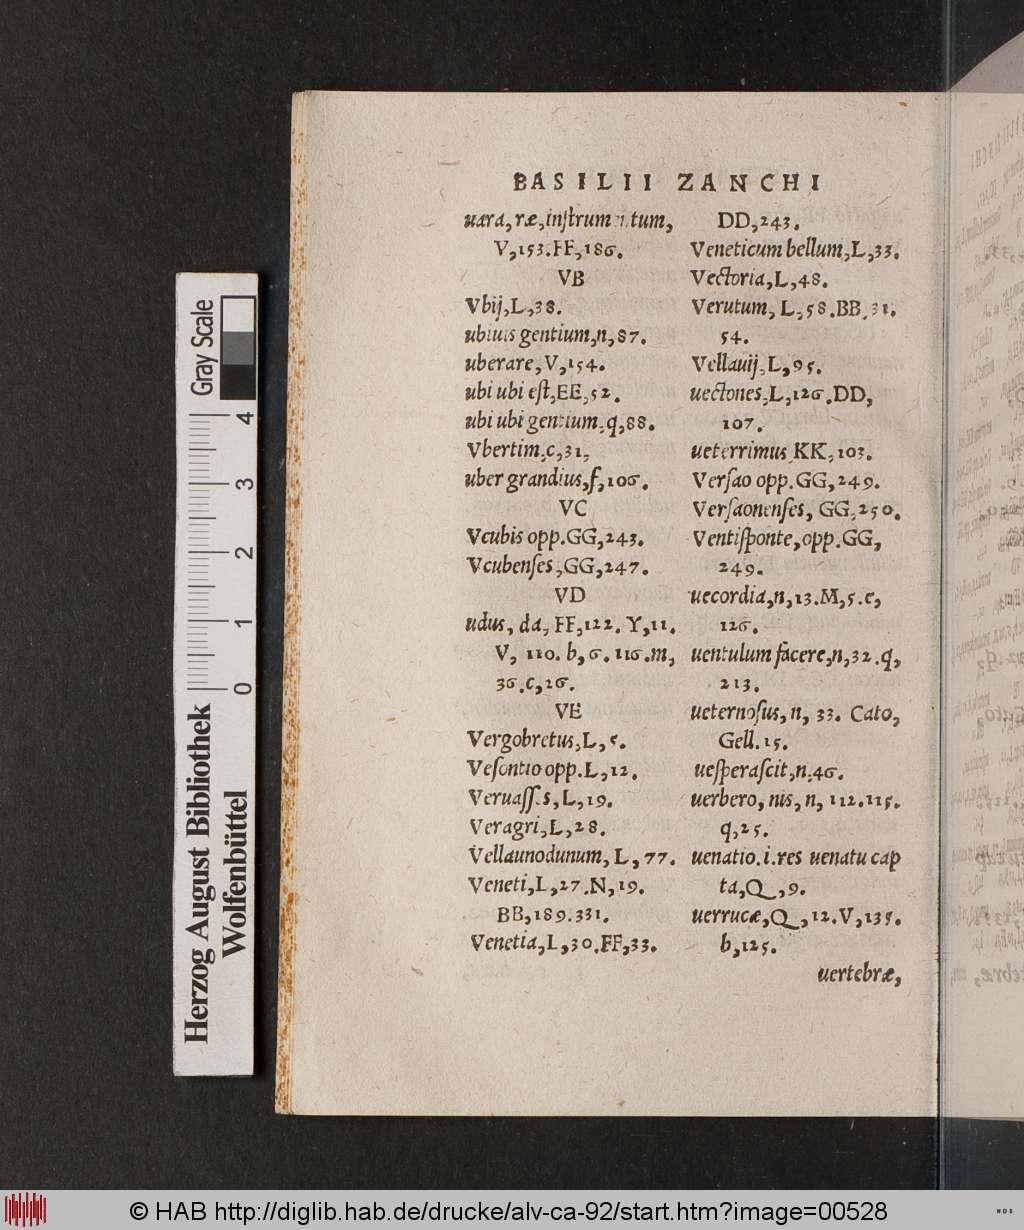 BASILII ZANCHI
uara, ræ, instrum tum,
V,153.FF,186.
VB
Vbij,L,38.
ubiuis gentium,n,87.
uberare,V,154.
ubi ubi est,EE,52.
ubi ubi gentium,q,88.
Vbertim,c,31,
uber grandius,f,106.
VC
Vcubis opp.GG,243.
Vcubenses,GG,247.
VD
udus, da, FF,122. Y,11.
V, 110. b,6. 116.m,
36.c,26.
VE
Vergobretus,L,5.
Vesontio opp.L,12.
Veruass.s,L,19.
Veragri,L,28.
Vellaunodunum, L, 77.
Veneti,L,27.N,19.
BB,189.331.
Venetia,L,30.FF,33.
DD,243.
Veneticum bellum,L,33.
Vectoria,L,48.
Verutum, L,58.BB,31.
54.
Vellauij,L,95.
uectones,L,126.DD,
107.
ueterrimus KK,103.
Versao opp.GG,249.
Versaonenses, GG,250.
Ventisponte,opp.GG,
249.
uecordia,n,13.M,5.e,
126.
uentulum facere,n,32.q,
213.
ueternosus,n, 33. Cato,
Gell.15.
uesperascit,n,46.
uerbero, nis, n, 112.115.
q,25.
uenatio.i.res uenatu cap
ta,Q,9.
uerrucæ,Q,12.V,135.
b,125.
uertebræ,
Gray Scale
4
3
2
1
0
Herzog August Bibliothek
Wolfenbüttel
© HAB http://diglib.hab.de/drucke/alv-ca-92/start.htm?image=00528